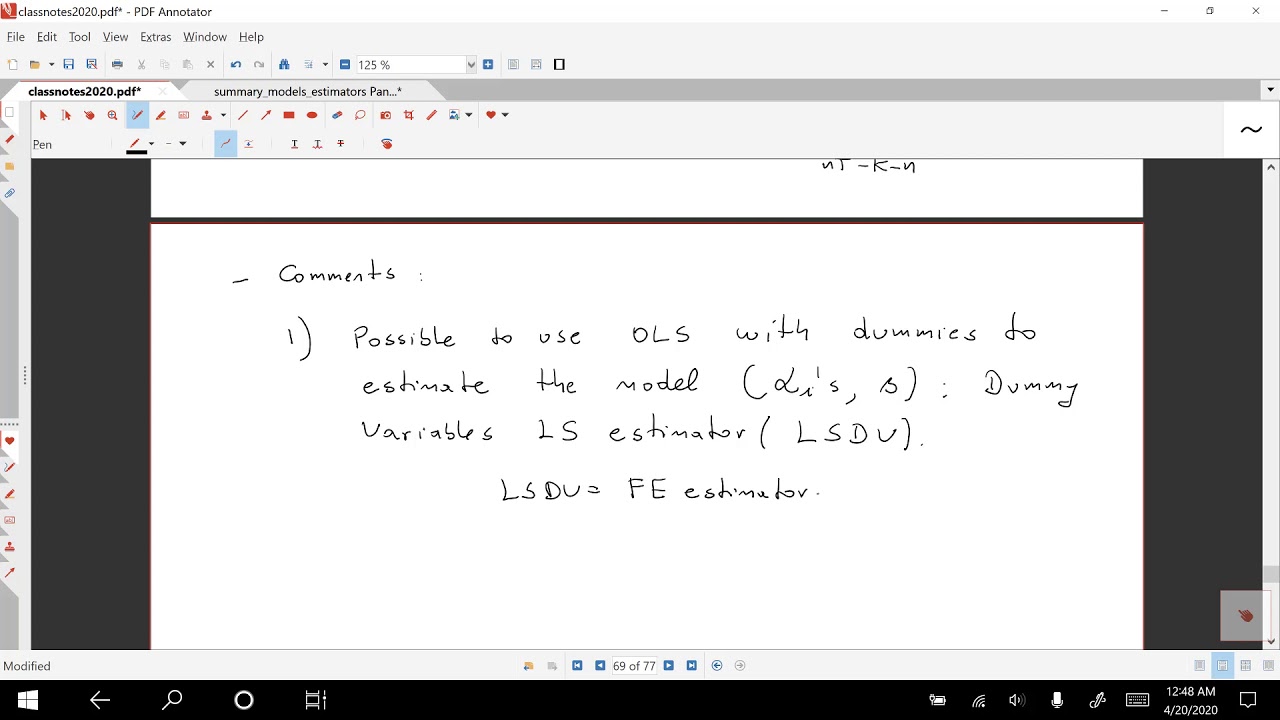 classnotes2020.pdf* - PDF Annotator
File Edit Tool View Extras Window Help
125 %
classnotes2020.pdf* summary_models_estimators Pan...*
Pen
nT - K - n
- Comments :
1) Possible to use OLS with dummies to
estimate the model (αi's, β) : Dummy
Variables LS estimator ( LSDV).
LSDV = FE estimator.
Modified 69 of 77
12:48 AM
4/20/2020